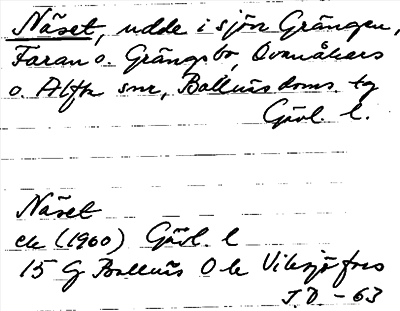 Näset, udde i sjön Grängen,
Faran o. Grängsbo, Ovanåkers
o. Alfta snr, Bollnäs doms. tg
Gävl. l.
Näset
ek (1960) Gävl. l
15 G Bollnäs 0 b Viksjöfors
J.D - 63